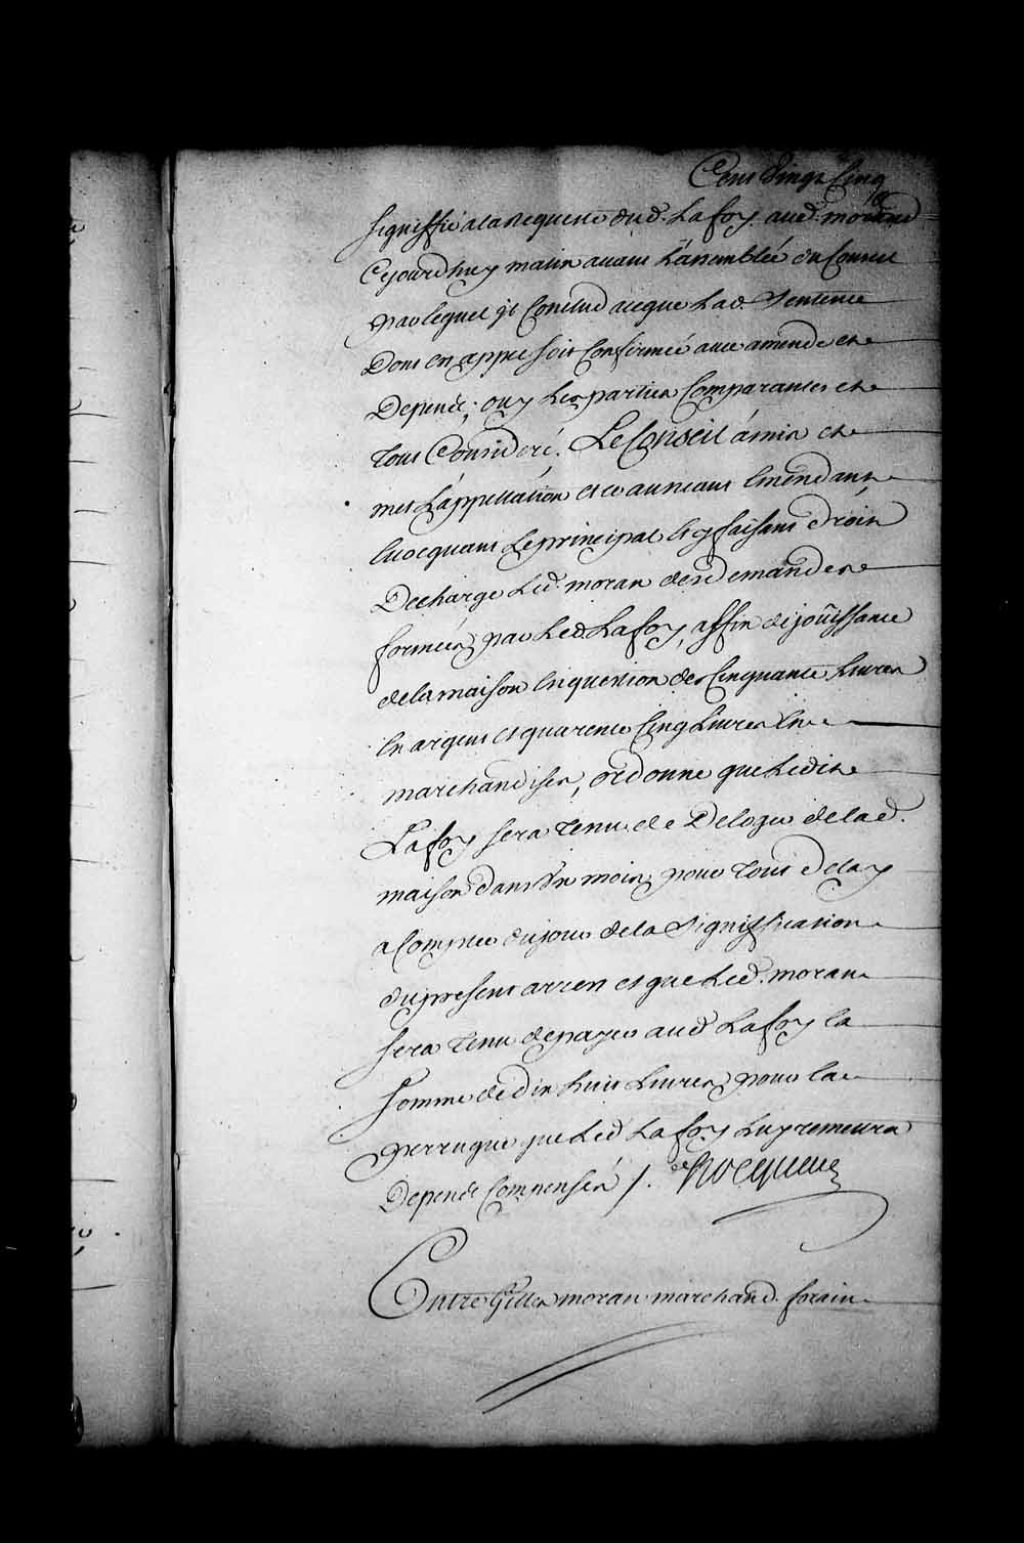 Cent Vingt Cinq
signiffié a la Requeste dud. Lafoy aud. moran
Cejourd'huy matin avant L'assemblée du Conseil
par lequel il Conclud aceque Lad. Sentence
Dont en appel soit Confirmée avec amende et
Depens; ouy Les parties Comparantes et
tout Consideré. Le Conseil a mis et
met L'appellation et ce au neant Emendant
Evocquant Le principal et y faisant droit
Decharge Led. moran des demandes
formées par Led. Lafoy, affin de joüissance
de la maison En question de Cinquante Livres
En argent et quarente Cinq Livres En
marchandises, ordonne que Ledit
Lafoy sera tenu de Deloger de lad.
maison dans Un mois pour tout delay
a Compter du jour de la Signiffication
du present arrest et que Led. moran
sera tenu de payer aud Lafoy la
somme de dix huit Livres pour la
perruque que Led Lafoy Luy remettra
Depens Compensés /. Hocquart
Entre Gilles moran marchand forain